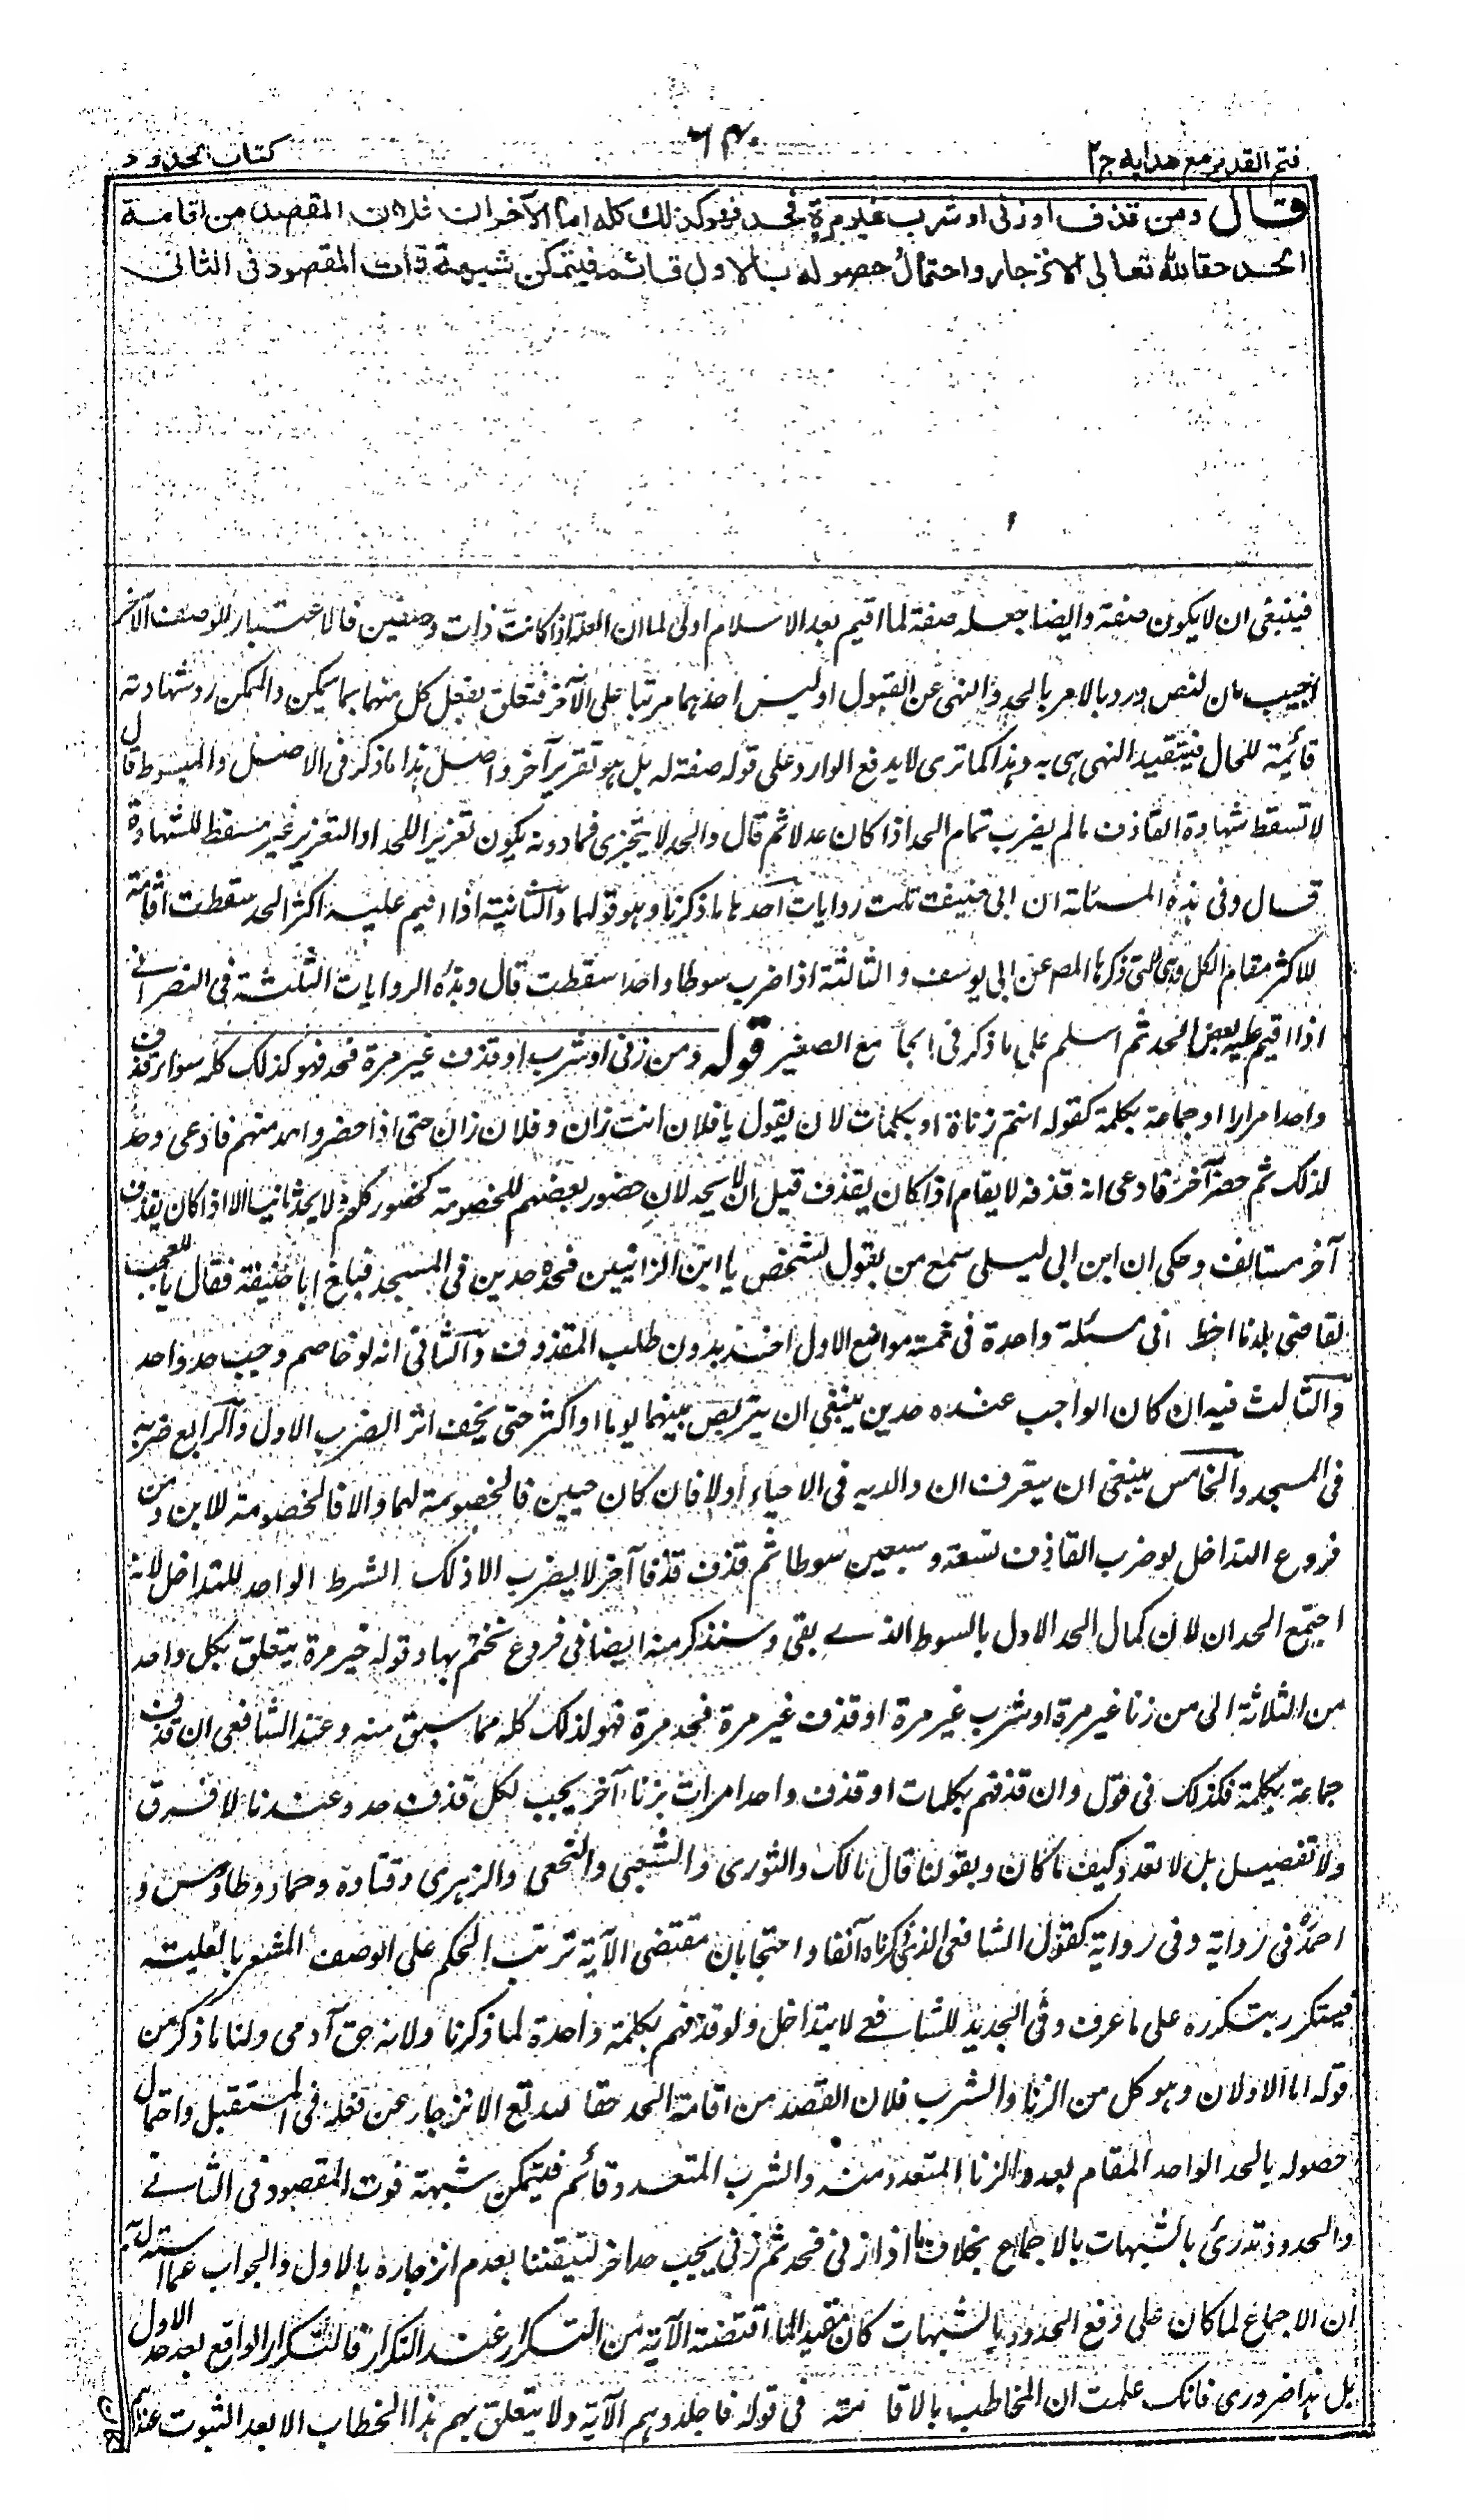 فتح القدير مع هدايه ج۲
كتاب الحدود
قال ومن قذف او زنى او شرب غير مرة فحد فهو كذلك كله اما الآخران فلان المقصد من اقامة
الحد حقا لله تعالى الانزجار واحتمال حصوله بالاول قائم فيتمكن شبهة فوات المقصود فى الثانى
فينبغى ان لا يكون صفة وايضا جعله صفة لما اقيم بعد الاسلام اولى لما ان العلة اذا كانت ذات وصفين فالاعتبار للوصف الآخر
اجيب بان النص ورد بالامر بالحد والنهى عن القبول وليس احدهما مرتبا على الآخر فتعلق بفعل كل منهما بما يمكن والممكن رد شهادته
قائمة للحال فيتقيد النهى به وهذا كما ترى لا يدفع الوارد على قوله صفة له بل هو تقرير آخر واصل هذا ما ذكر فى الاصل والمبسوط قال
لا تسقط شهادة القاذف مالم يضرب تمام الحد اذا كان عدلا ثم قال والحد لا يتجزى فما دونه يكون تعزيرا لا حدا والتعزير غير مسقط للشهادة
قال وفى هذه المسئلة عن ابى حنيفة ثلث روايات احدها ما ذكرنا وهو قولهما والثانية اذا اقيم عليه اكثر الحد سقطت اقامة
للاكثر مقام الكل وهى التى ذكرها المص عن ابى يوسف والثالثة اذا ضرب سوطا واحدا سقطت قال وهذه الروايات الثلثة فى النصرانى
اذا اقيم عليه بعض الحد ثم اسلم على ما ذكر فى الجامع الصغير قوله ومن زنى او شرب او قذف غير مرة فحد فهو كذلك كله سواء قذف
واحدا مرارا او جماعة بكلمة كقوله انتم زناة او بكلمات كان يقول يا فلان انت زان وفلان زان حتى اذا حضر واحد منهم فادعى وحد
لذلك ثم حضر آخر فادعى انه قذفه لا يقام اذا كان يقذف قبل ان يحد لان حضور بعضهم للخصومة كحضور كلهم فلا يحد ثانيا الا اذا كان يقذف
آخر مستانف وحكى ان ابن ابى ليلى سمع من يقول لشخص يا ابن الزانيين فحده حدين فى المسجد فبلغ ابا حنيفة فقال يا للعجب
لقاضى بلدنا اخطا فى مسئلة واحدة فى خمسة مواضع الاول اخذه بدون طلب المقذوف والثانى انه لو خاصم وجب حد واحد
والثالث فيه ان كان الواجب عنده حدين ينبغى ان يتربص بينهما يوما او اكثر حتى يخف اثر الضرب الاول والرابع ضربه
فى المسجد والخامس ينبغى ان يتعرف ان والديه فى الاحياء اولا فان كان حيين فالخصومة لهما والا فالخصومة للابن ومن
فروع التداخل لو ضرب القاذف تسعة وسبعين سوطا ثم قذف قذفا آخر لا يضرب الا ذلك السوط الواحد للتداخل لانه
اجتمع الحدان لان كمال الحد الاول بالسوط الذى بقى وسنذكر منه ايضا فى فروع نختم بها وقوله غير مرة يتعلق بكل واحد
من الثلاثة اى من زنا غير مرة او شرب غير مرة او قذف غير مرة فحد مرة فهو لذلك كله مما سبق منه وعند الشافعى ان قذف
جماعة بكلمة فكذلك فى قول وان قذفهم بكلمات او قذف واحدا مرات بزنا آخر يجب لكل قذف حد وعندنا لا فرق
ولا تفصيل بل لا يتعدد كيف ما كان وبقولنا قال مالك والثورى والشعبى والنخعى والزهرى وقتادة وحماد وطاوس و
احمد فى رواية وفى رواية كقول الشافعى الذى ذكرناه آنفا واحتجا بان مقتضى الآية ترتب الحكم على الوصف المشعر بالعلية
فيتكرر بتكرره على ما عرف وفى الجديد للشافعى لا يتداخل ولو قذفهم بكلمة واحدة لما ذكرنا ولانه حق آدمى ولنا ما ذكر من
قوله اما الاولان وهو كل من الزنا والشرب فلان القصد من اقامة الحد حقا لله تع الانزجار عن فعله فى المستقبل واحتمال
حصوله بالحد الواحد المقام بعد الزنا المتعدد منه والشرب المتعدد قائم فيتمكن شبهة فوت المقصود فى الثانى
والحدود تدرئ بالشبهات بالاجماع بخلاف ما اذا زنى فحد ثم زنى يجب حد آخر لتيقننا بعدم انزجاره بالاول والجواب عما استدل به
ان الاجماع لما كان على دفع الحدود بالشبهات كان مقيدا لما اقتضته الآية من التكرار عند التكرار فالتكرار الواقع بعد حد الاول
بل هذا ضرورى فانك علمت ان المخاطب بالاقامة فى قوله فاجلدوهم الآية ولا يتعلق بهم هذا الخطاب الا بعد الثبوت عندهم